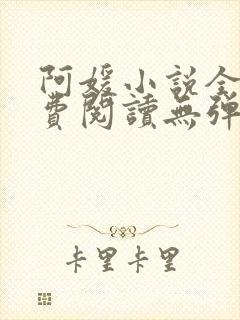 阿媛小說全
費閱讀無彈
卡里卡里